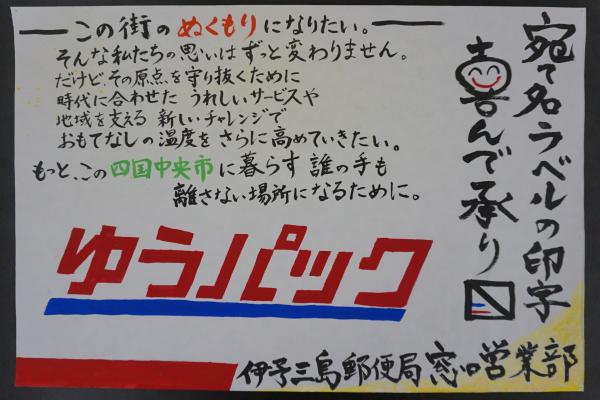 この街のぬくもりになりたい。
そんな私たちの思いはずっと変わりません。
だけど、その原点を守り抜くために
時代に合わせた うれしいサービスや
地域を支える 新しいチャレンジで
おもてなしの温度を さらに高めていきたい。
もっと、この四国中央市に暮らす 誰の手も
離さない場所になるために。
宛て名ラベルの印字
喜んで承り〼
ゆうパック
伊予三島郵便局窓口営業部